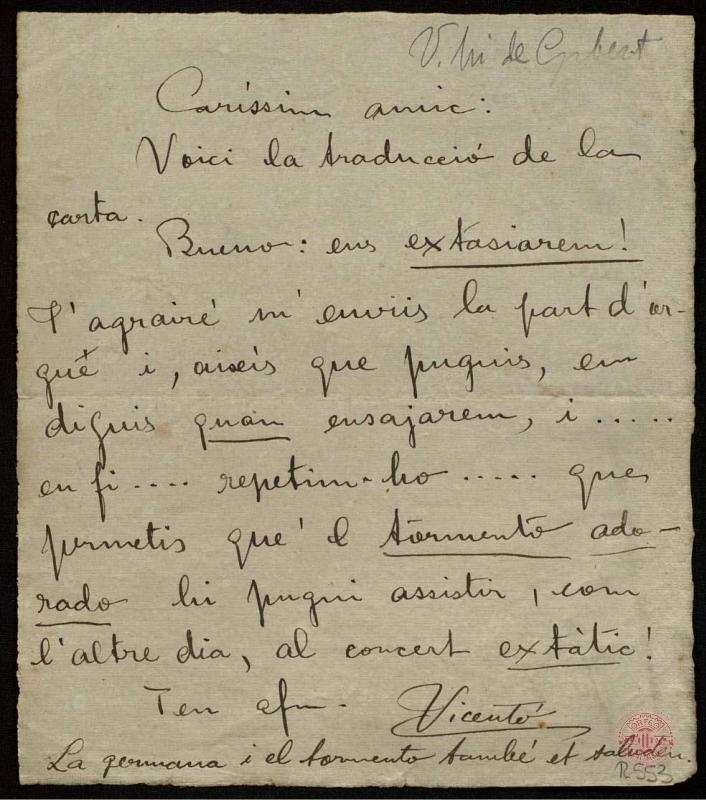 V. Mª de Gibert
Caríssim amic:
Voici la traducció de la
carta.
Bueno: ens extasiarem!
T'agrairé m'enviis la part d'or-
gue i, aixís que puguis, em
diguis quan ensajarem, i .....
en fi .... repetim-ho ..... que
permetis que'l tormento ado-
rado hi pugui assistir, com
l'altre dia, al concert extàtic!
Ten afm.
Vicentó
La germana i el tormento també et saluden.
R 553